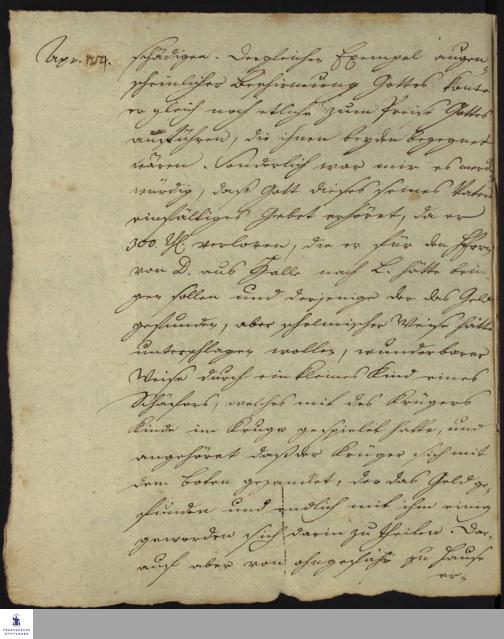 Apr. 1754. schädigen. Dergleichen Exempel augen-
scheinlicher Beschirmung Gottes könte
er gleich noch etliche zum Preise Gottes
anführen, die ihnen beyden begegnet
wären. Sonderlich war mir es merck-
würdig, daß Gott dieses seines Vaters
einfältiges Gebet erhöret, da er
300 Thl. verloren, die er für den Herrn
von D. aus Halle nach L. hätte brin-
gen sollen und derjenige der das Geld
gefunden, aber schelmischer Weise hätte
unterschlagen wollen, wunderbarer
Weise durch ein kleines Kind eines
Schäfers, welches mit des Krügers
Kinde im Kruge gespielet hatte, und
angehöret daß der Krüger sich mit
dem Boten gezancket, der das Geld ge-
funden und endlich mit ihm einig
geworden sich darin zu theilen. Dar-
auf aber von ohngefähr zu Hause
er-
FRANCKESCHE
STIFTUNGEN